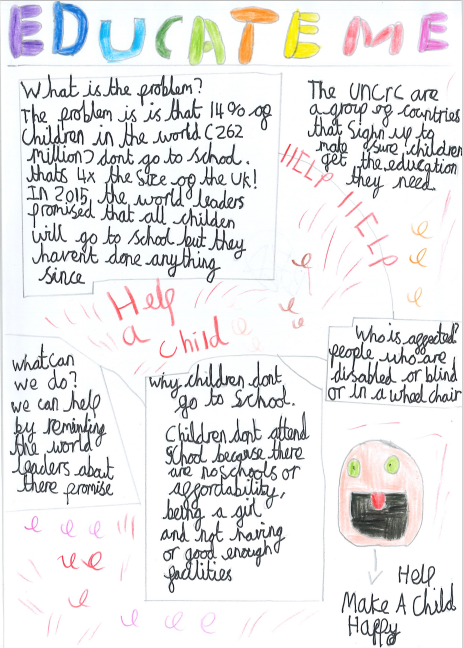 EDUCATE ME
What is the problem?
The problem is is that 14% of
Children in the world (262
million) dont go to school.
thats 4x the size of the UK!
In 2015, the world leaders
promised that all children
will go to school but they
havent done anything
since
The UNCRC are
a group of countries
that sighn up to
make sure children
get the education
they need
HELP HELP
Help
a child
Who is affected?
people who are
disabled or blind
or in a wheel chair
what can
we do?
we can help
by reminting
the world
leaders about
there promise
why children dont
go to School.
Children dont attend
School because there
are no schools or
affordability,
being a girl
and not having
or good enough
facilities
Help
Make A Child
Happy